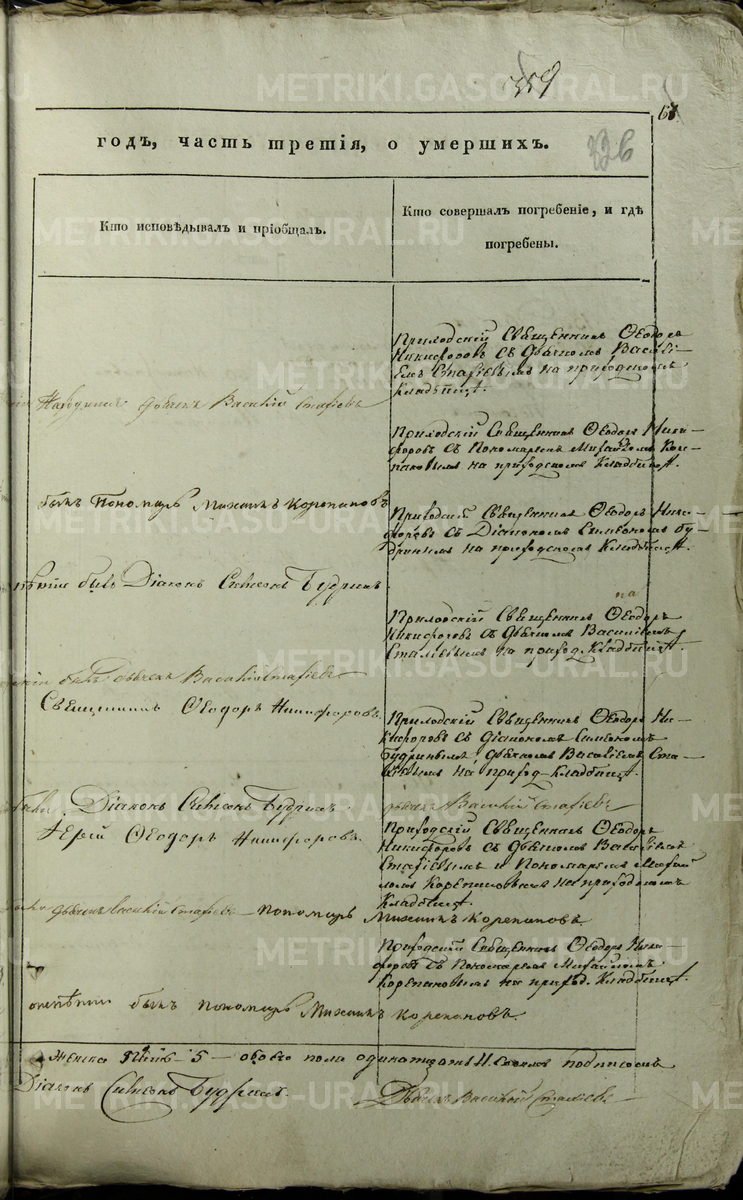 559
годъ, часть третія, о умершихъ.
Кто исповѣдывалъ и пріобщалъ.
Кто совершалъ погребеніе, и гдѣ
погребены.
Приходскій Священникъ Ѳеодоръ
Никифоровъ съ дьячкомъ Васілі-
емъ на приходскомъ
Кладбищѣ.
дьячекъ Василій
Приходскій Священникъ Ѳеодоръ Ники-
форовъ съ Пономаремъ Михайломъ Коре-
пановымъ на приходскомъ Кладбищѣ.
былъ Пономарь Михаилъ Корепановъ
Приходскій Священникъ Ѳеодоръ Ники-
форовъ съ Діакономъ Симеономъ Бу-
дринымъ на приходскомъ Кладбищѣ.
былъ Діаконъ Симеонъ Будринъ.
Приходскій Священникъ Ѳеодоръ
Никифоровъ съ дьячкомъ Василіемъ
на приход. Кладбищѣ.
былъ дьячекъ Василій
Священникъ Ѳеодоръ Никифоровъ.
Приходскій Священникъ Ѳеодоръ Ни-
кифоровъ съ діакономъ Симеономъ
Будринымъ, дьячкомъ Василіемъ
на приход. Кладбищѣ.
Діаконъ Симеонъ Будринъ.
дьячекъ Василій
Іерей Ѳеодоръ Никифоровъ.
Приходскій Священникъ Ѳеодоръ
Никифоровъ съ дьячкомъ Василіемъ
и Пономаремъ Михаи-
ломъ Корепановымъ на приходскомъ
Кладбищѣ.
дьячекъ Василій Пономарь Михаилъ Корепановъ
Приходскій Священникъ Ѳеодоръ Ники-
форовъ съ Пономаремъ Михайломъ
Корепановымъ на приход. Кладбищѣ.
былъ пономарь Михаилъ Корепановъ.
Женска 5 — обоего пола одинатцать
Діаконъ Симеонъ Будринъ.
Дьячекъ Василій
METRIKI.GASO-URAL.RU